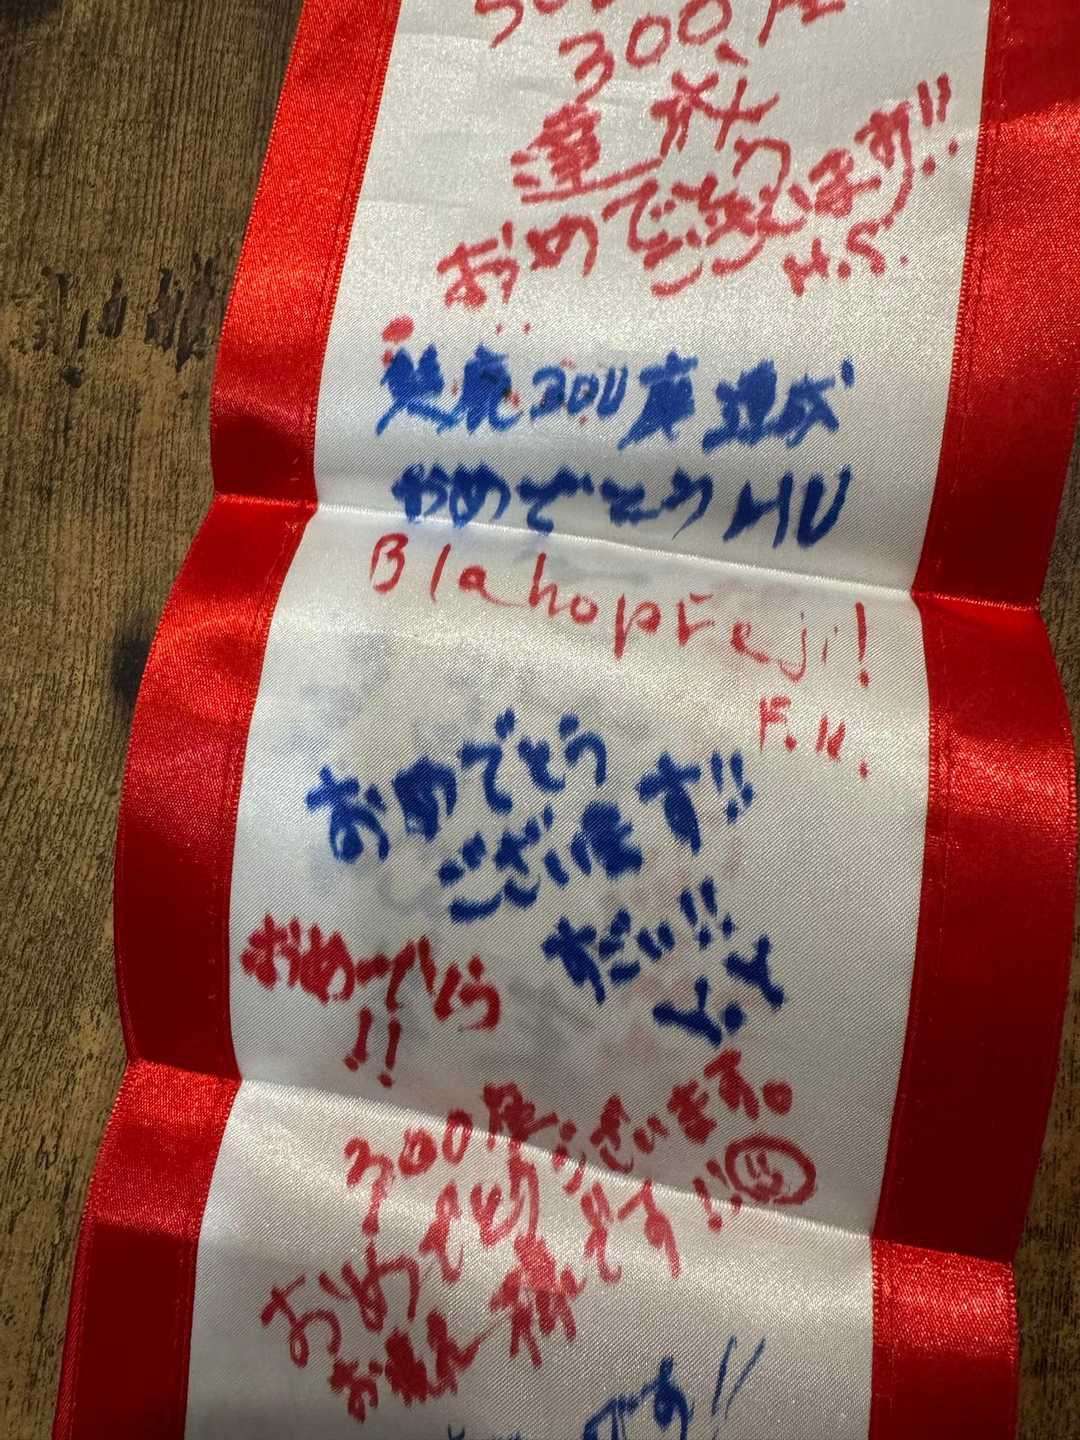 300座
達成
おめでとう
ございます!!
H.S.
300座達成
おめでとう HU
Blahopřeji!
F.U.
おめでとう
ございます!!
だい!!
Y.Y
おめでとう
!!
300座
おめでとうございます。
お疲れ様です!!
です!!